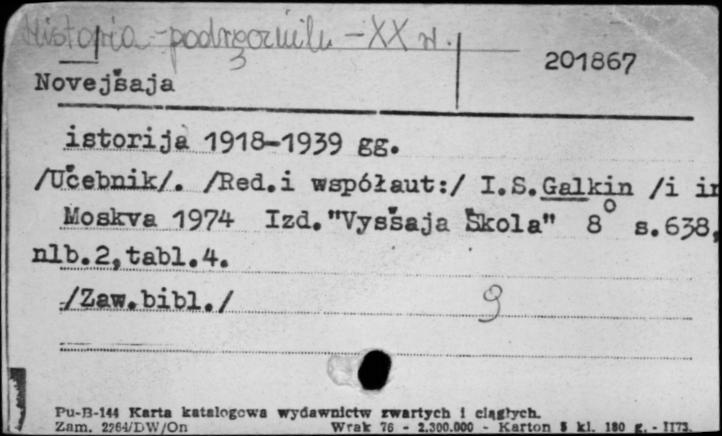 Historia - podręczniki - XX w.
201867
Novejšaja
istorija 1918-1939 gg.
/Učebnik/. /Red.i współaut:/ I.S.Galkin /i in
Moskva 1974 Izd."Vysšaja Škola" 8° s.638,
nlb.2,tabl.4.
/Zaw.bibl./
9
Pu-B-144 Karta katalogowa wydawnictw zwartych i ciągłych.
Zam. 2264/DW/On Wrak 76 - 2.300.000 - Karton 5 kl. 180 g. - II73.